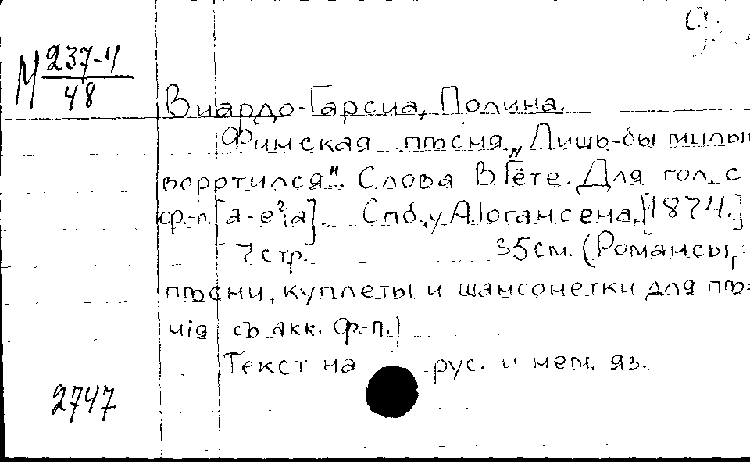 М 237-4
48
Виардо-Гарсиа, Полина.
Финская пѣсня „Лишь-бы милый
воротился". Слова В Гёте. Для гол. с
ф-п. [a-e²;a]. Спб., у А Іогансена, [1874.]
7 стр. 35 см. (Романсы,
пѣсни, куплеты и шансонетки для пѣ-
нія съ акк. ф-п.)
Текст на рус. и нем. яз.
2747